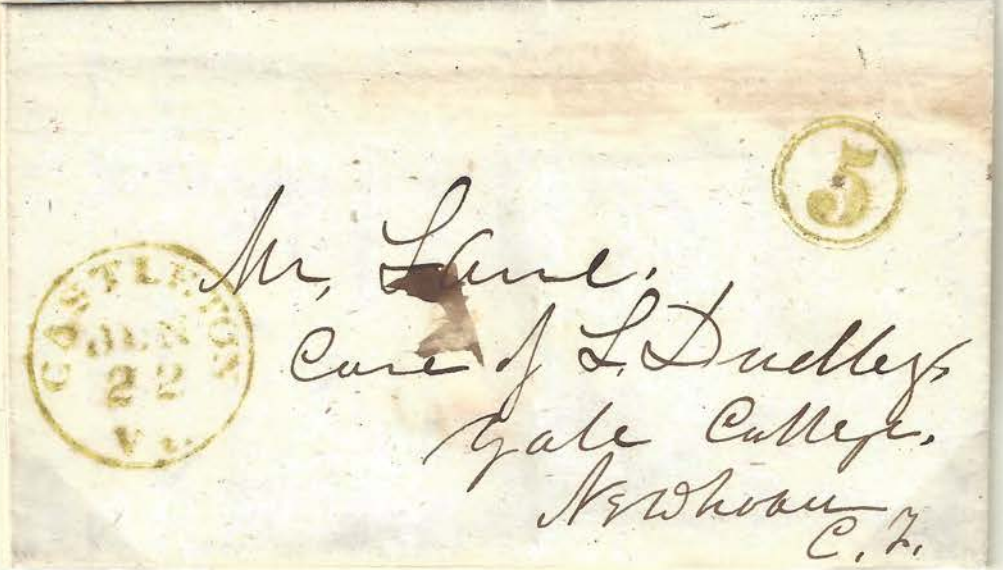 5
CASTLETON
JUN
22
Vt.
Mr. Lane.
Care of L. Dudley
Yale College.
Newhaven
C. T.